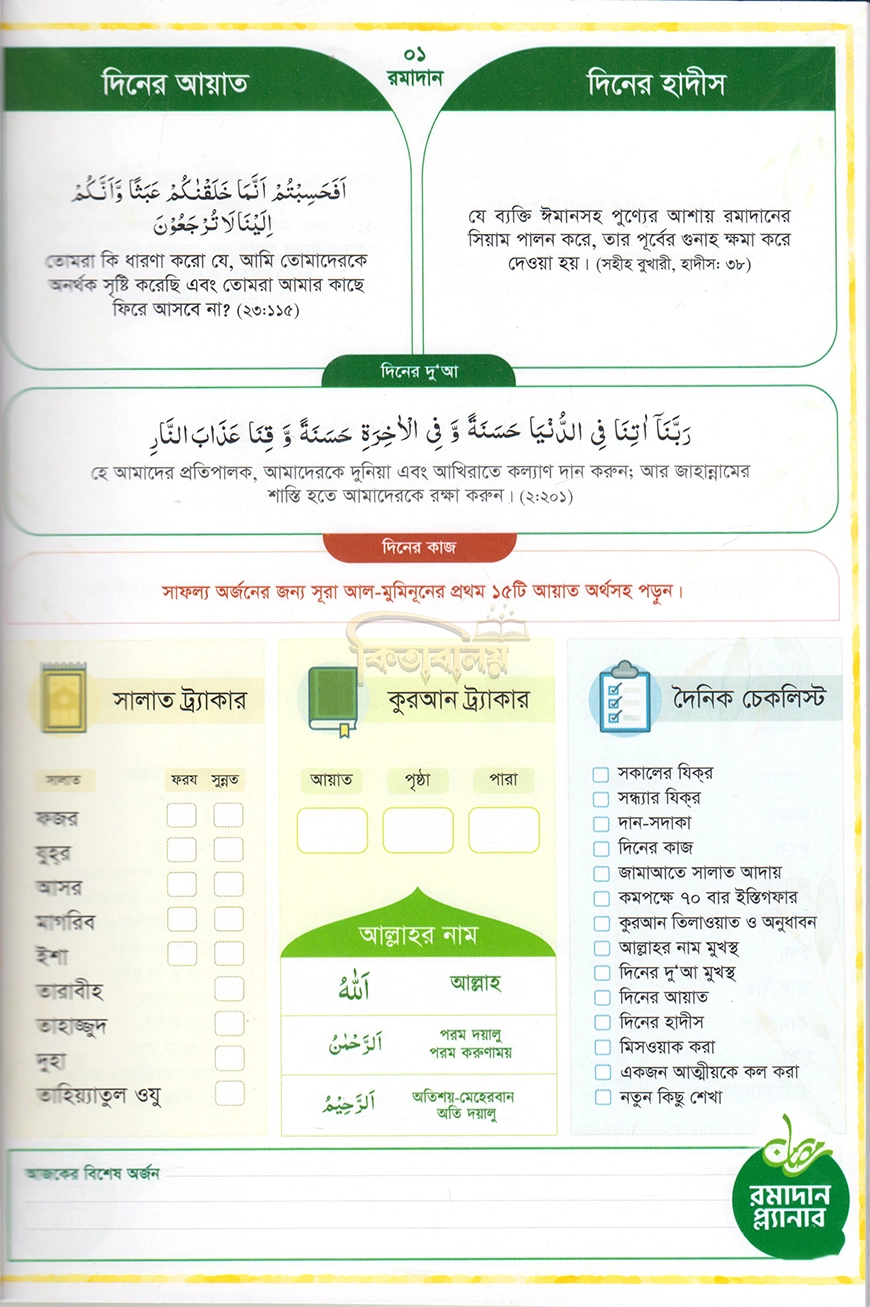 ০১
রমাদান
দিনের আয়াত
اَفَحَسِبْتُمْ اَنَّمَا خَلَقْنٰكُمْ عَبَثًا وَّاَنَّكُمْ
اِلَيْنَا لَا تُرْجَعُوْنَ
তোমরা কি ধারণা করো যে, আমি তোমাদেরকে
অনর্থক সৃষ্টি করেছি এবং তোমরা আমার কাছে
ফিরে আসবে না? (২৩:১১৫)
দিনের হাদীস
যে ব্যক্তি ঈমানসহ পুণ্যের আশায় রমাদানের
সিয়াম পালন করে, তার পূর্বের গুনাহ ক্ষমা করে
দেওয়া হয়। (সহীহ বুখারী, হাদীস: ৩৮)
দিনের দু‘আ
رَبَّنَآ اٰتِنَا فِي الدُّنْيَا حَسَنَةً وَّ فِي الْاٰخِرَةِ حَسَنَةً وَّ قِنَا عَذَابَ النَّارِ
হে আমাদের প্রতিপালক, আমাদেরকে দুনিয়া এবং আখিরাতে কল্যাণ দান করুন; আর জাহান্নামের
শাস্তি হতে আমাদেরকে রক্ষা করুন। (২:২০১)
দিনের কাজ
সাফল্য অর্জনের জন্য সূরা আল-মুমিনূনের প্রথম ১৫টি আয়াত অর্থসহ পড়ুন।
কিতাবালয়
সালাত ট্র্যাকার
সালাত ফরয সুন্নত
ফজর
যুহর
আসর
মাগরিব
ইশা
তারাবীহ
তাহাজ্জুদ
দুহা
তাহিয়্যাতুল ওযু
কুরআন ট্র্যাকার
আয়াত পৃষ্ঠা পারা
আল্লাহর নাম
اَللّٰهُ আল্লাহ
اَلرَّحْمٰنُ পরম দয়ালু
পরম করুণাময়
اَلرَّحِيْمُ অতিশয়-মেহেরবান
অতি দয়ালু
দৈনিক চেকলিস্ট
সকালের যিক্‌র
সন্ধ্যার যিক্‌র
দান-সদাকা
দিনের কাজ
জামাআতে সালাত আদায়
কমপক্ষে ৭০ বার ইস্তিগফার
কুরআন তিলাওয়াত ও অনুধাবন
আল্লাহর নাম মুখস্থ
দিনের দু‘আ মুখস্থ
দিনের আয়াত
দিনের হাদীস
মিসওয়াক করা
একজন আত্মীয়কে কল করা
নতুন কিছু শেখা
আজকের বিশেষ অর্জন
রমাদান
প্ল্যানার